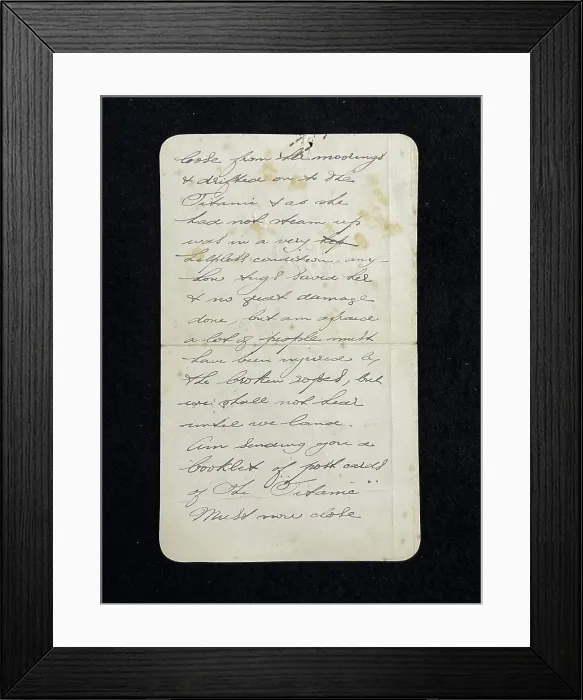 loose from the moorings
& drifted on to the
Titanic & as she
had not steam up
was in a very hep
helpless condition. any-
how tugs saved her
& no great damage
done, but am afraid
a lot of people must
have been injured by
the broken ropes, but
we shall not hear
until we land.
Am sending you a
booklet of post cards
of The "Titanic"
Must now close